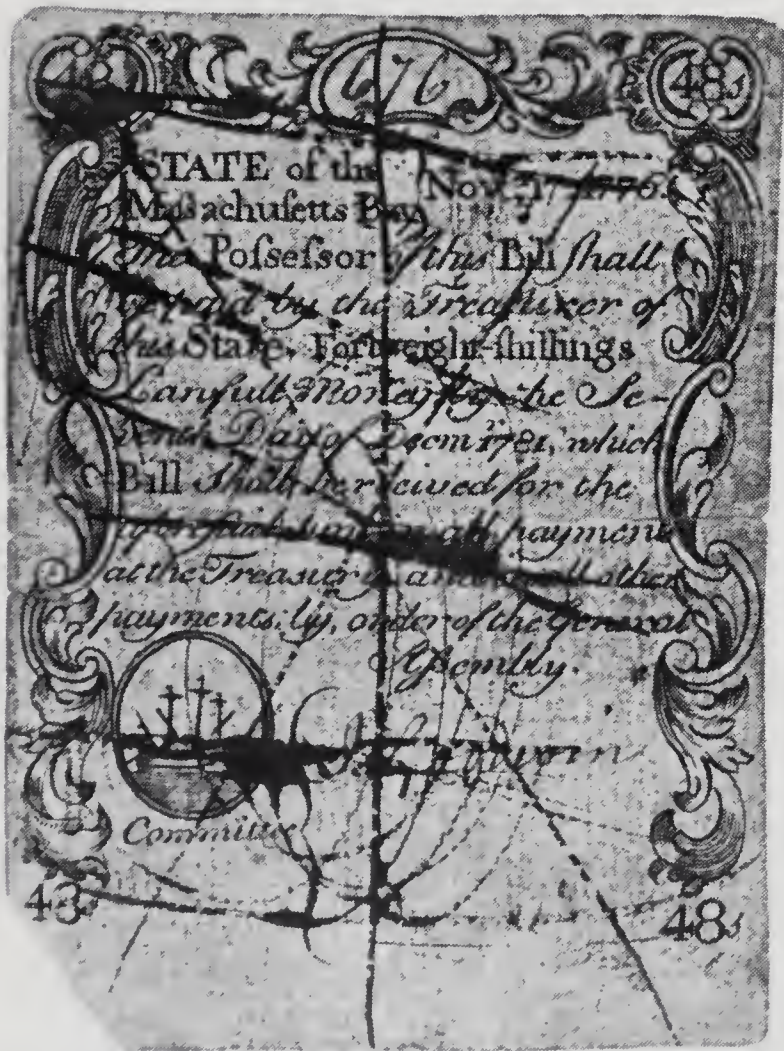 676 48s
STATE of the Nov. 17 1776
Massachusetts Bay
The Possessor of this Bill shall
be paid by the Treasurer of
this State, Forty eight-shillings
Lawfull Money by the Se-
venth Day of Decm 1781, which
Bill shall be received for the
aforesaid sum in all payments
at the Treasury and in all other
payments by order of the General
Assembly.
Committee
48s 48s